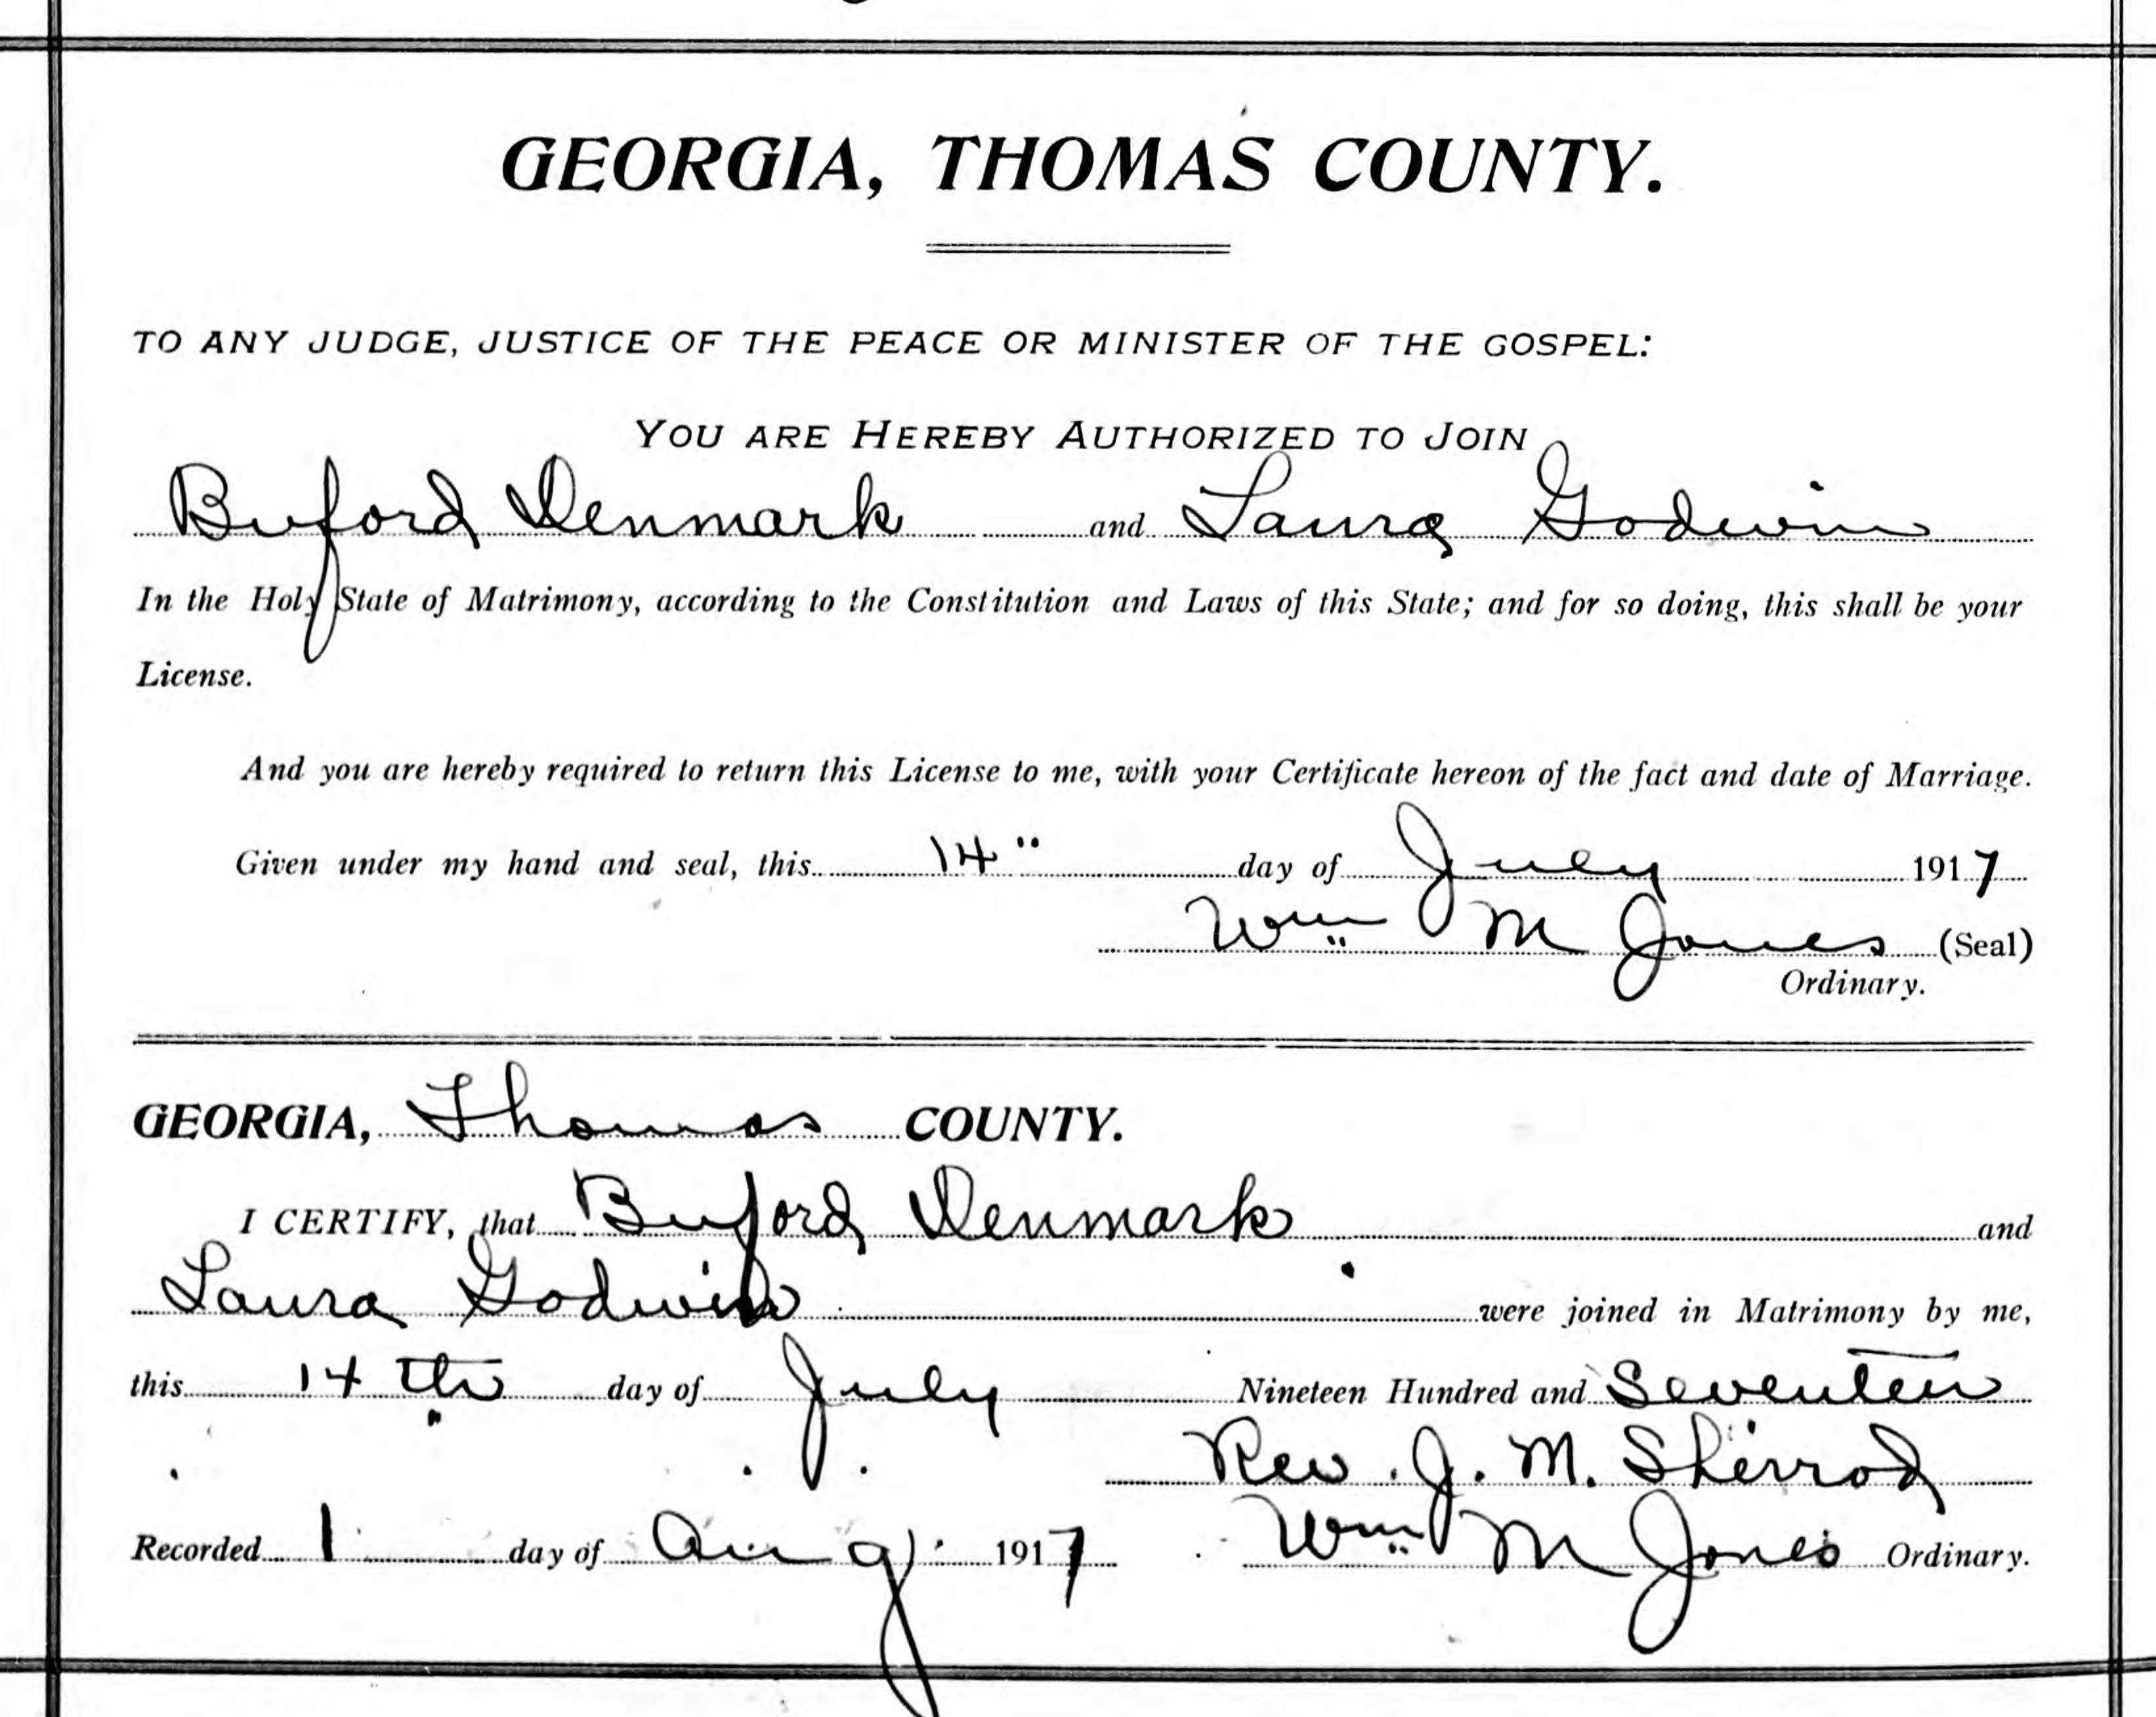 GEORGIA, THOMAS COUNTY.
TO ANY JUDGE, JUSTICE OF THE PEACE OR MINISTER OF THE GOSPEL:
YOU ARE HEREBY AUTHORIZED TO JOIN
Buford Denmark and Laura Godwin
In the Holy State of Matrimony, according to the Constitution and Laws of this State; and for so doing, this shall be your
License.
And you are hereby required to return this License to me, with your Certificate hereon of the fact and date of Marriage.
Given under my hand and seal, this 14" day of July 1917
Wm M Jones (Seal)
Ordinary.
GEORGIA, Thomas COUNTY.
I CERTIFY, that Buford Denmark and
Laura Godwin were joined in Matrimony by me,
this 14th day of July Nineteen Hundred and Seventen
Rev. J. M. Sherrod
Recorded 1 day of Aug. 1917 Wm M Jones Ordinary.